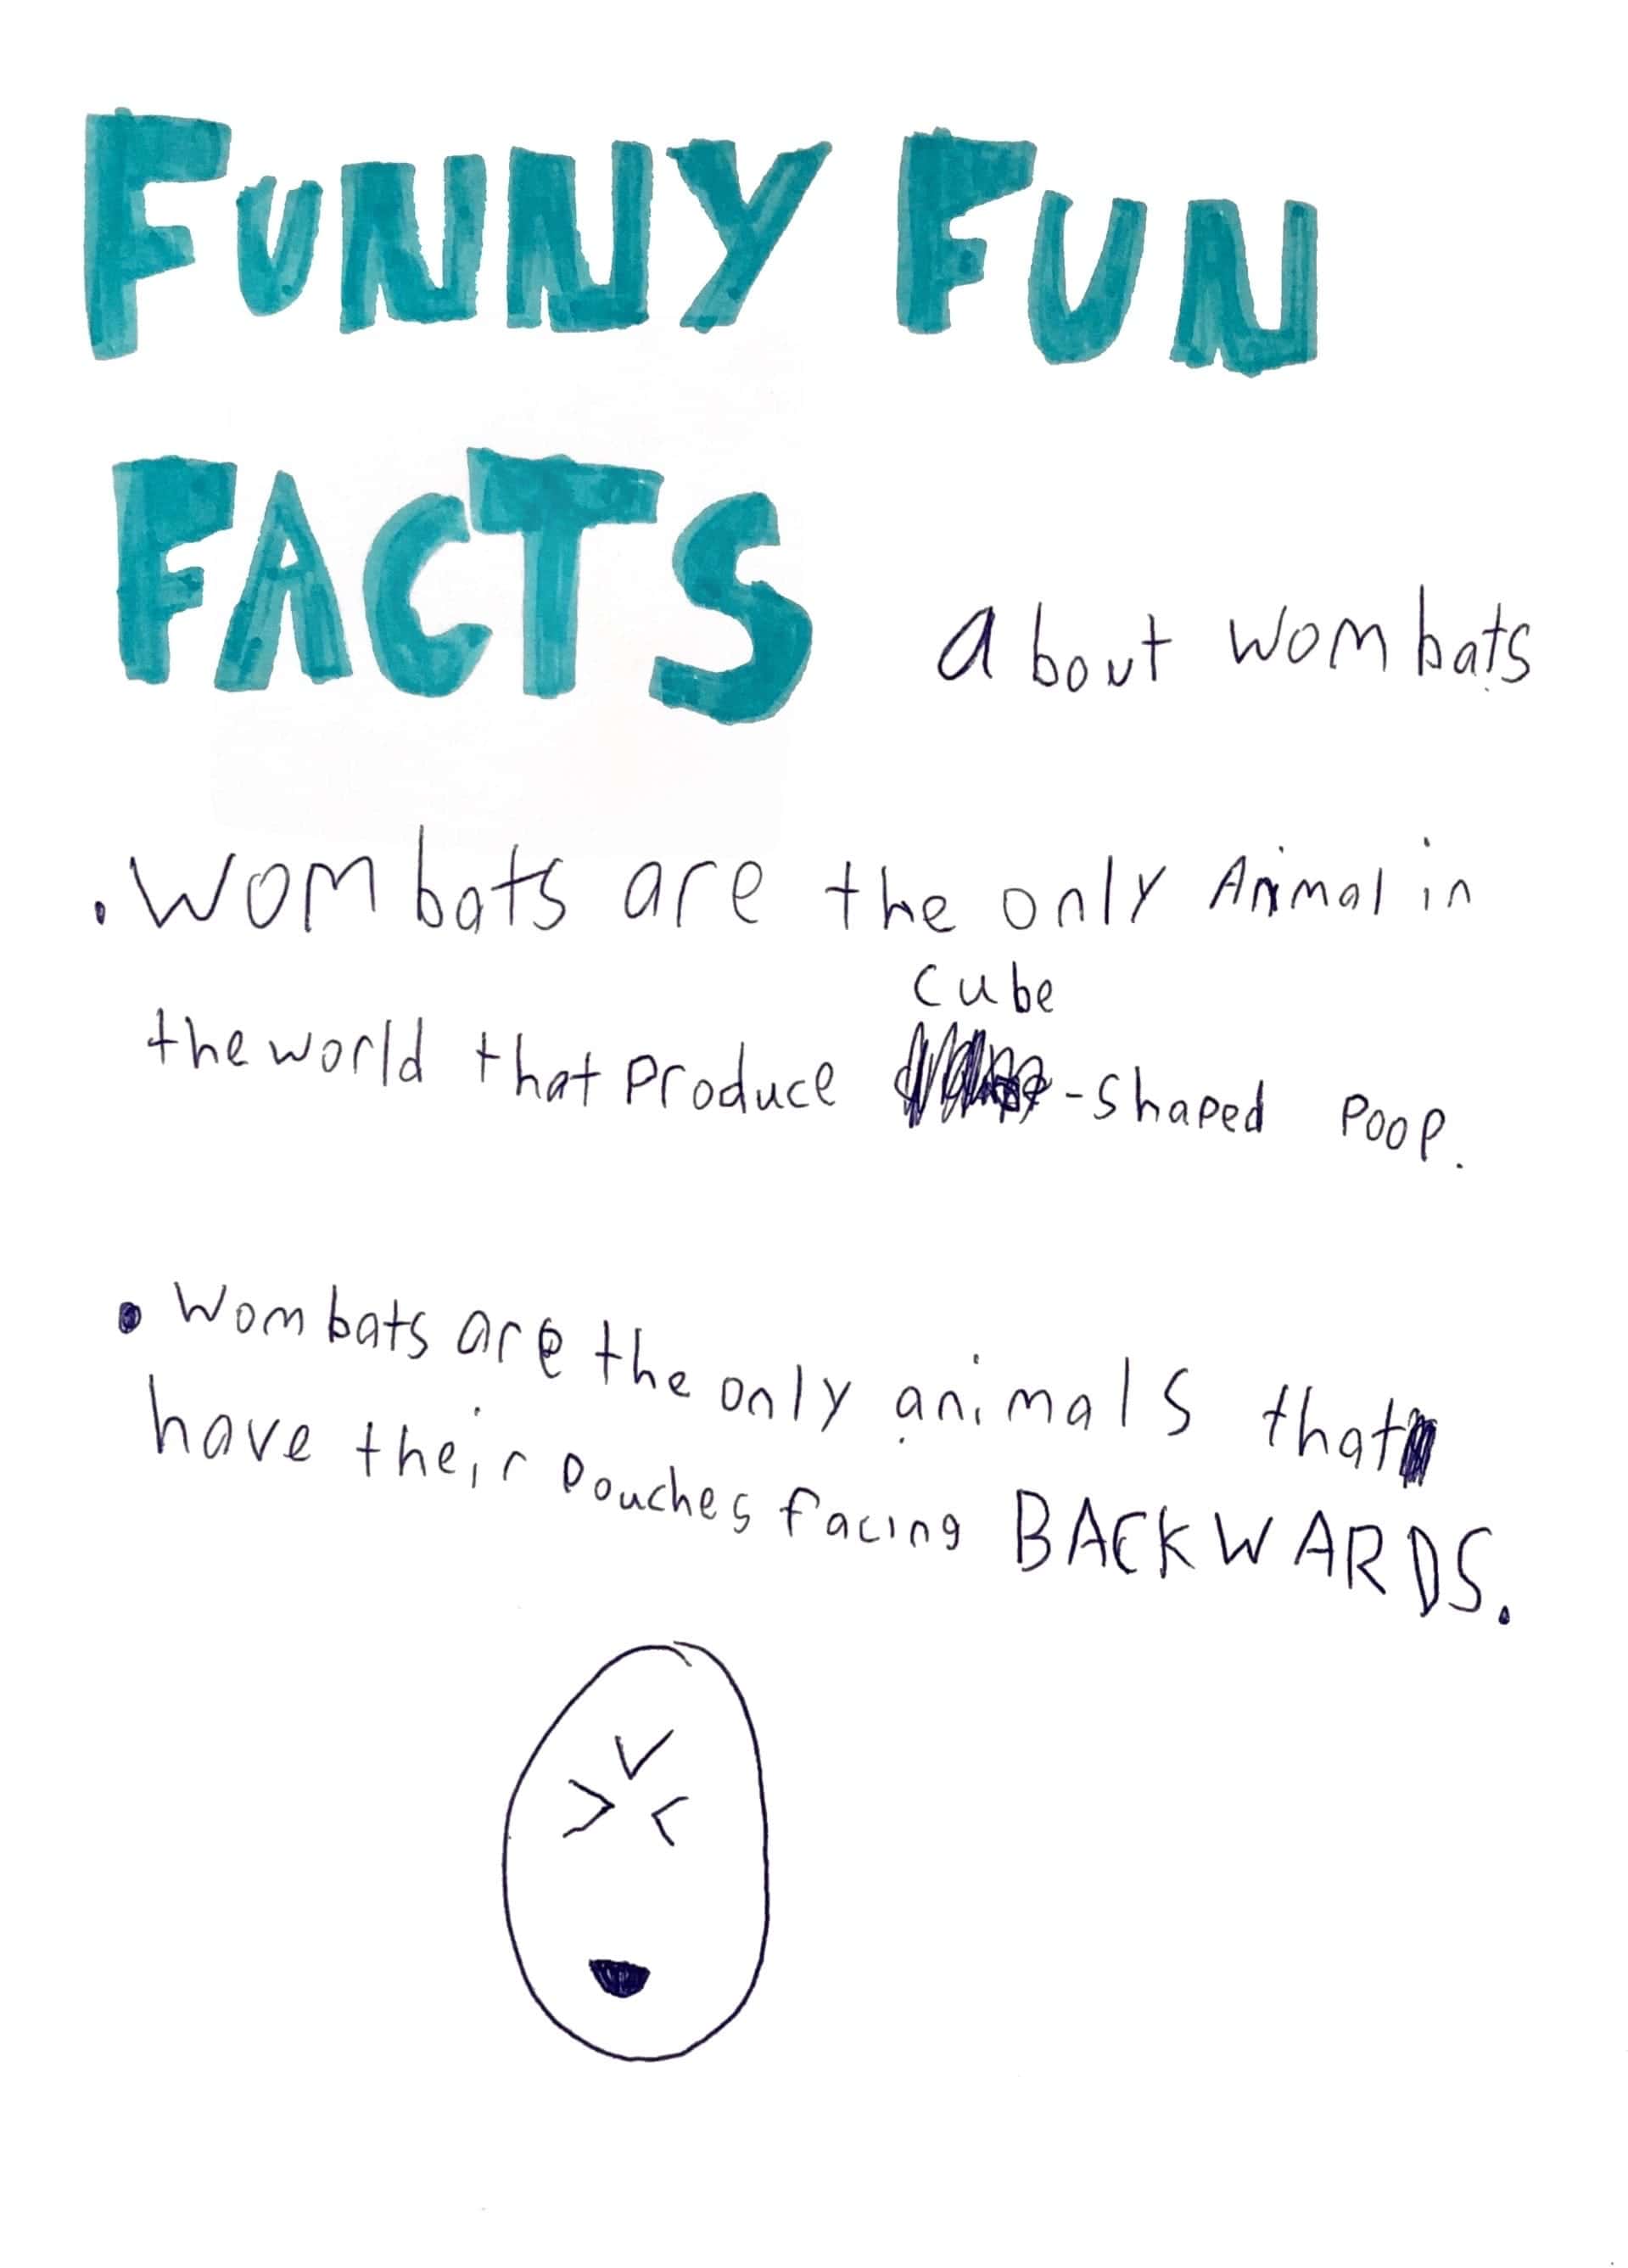 FUNNY FUN
FACTS about wombats
. Wombats are the only Animal in
cube
the world that produce -shaped poop.
• Wombats are the only animals that
have their pouches facing BACKWARDS.